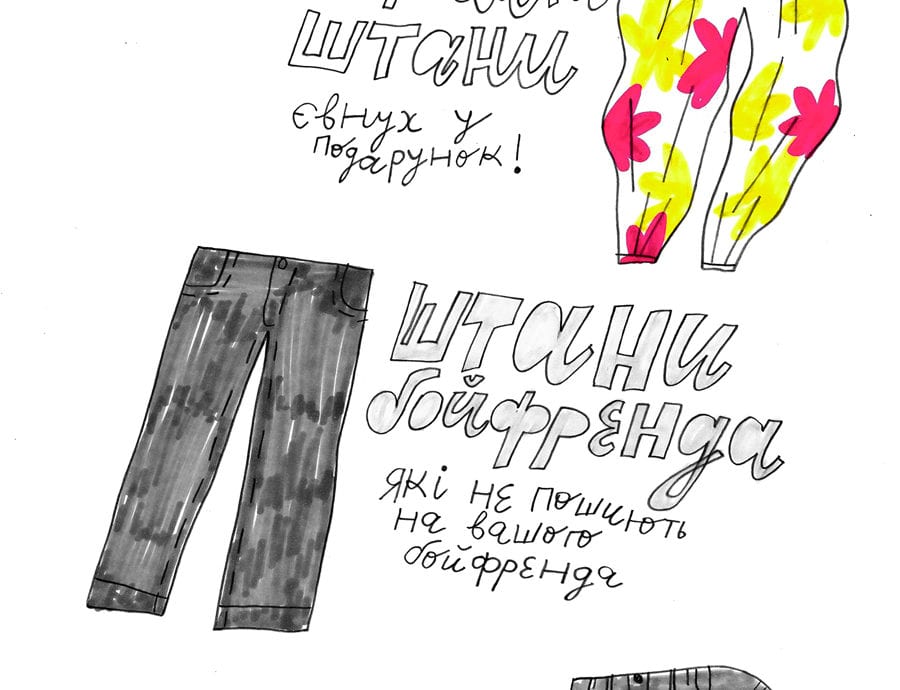 штани
євнух у
подарунок!
штани
бойфренда
які не пошиють
на вашого
бойфренда